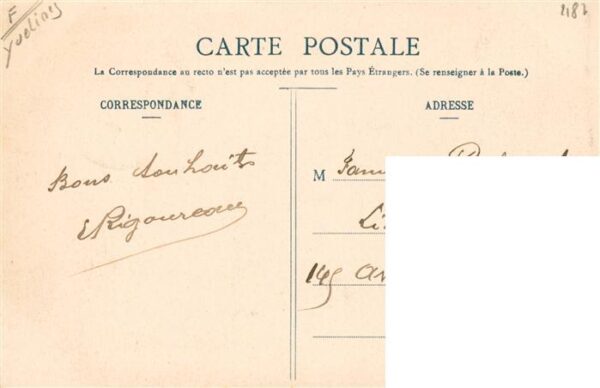 F
Yvelines
CARTE POSTALE
La Correspondance au recto n'est pas acceptée par tous les Pays Étrangers. (Se renseigner à la Poste.)
CORRESPONDANCE
ADRESSE
Bons souhaits
E Rigoureau
M
145